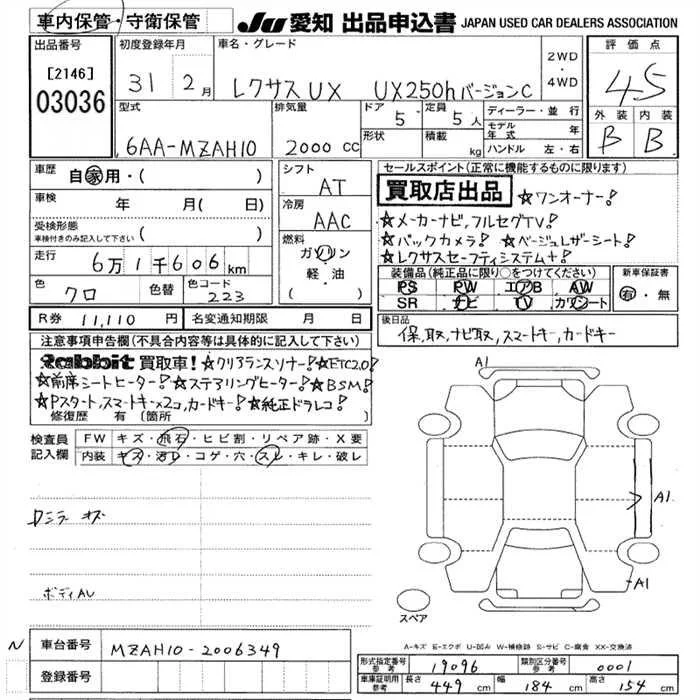 車内保管・守衛保管
JU 愛知 出品申込書 JAPAN USED CAR DEALERS ASSOCIATION
出品番号
[2146]
03036
初度登録年月
31 2月
車名・グレード
レクサスUX UX250hバージョンC
2WD
・
4WD
評価点
4.5
外装 内装
B B
型式
6AA-MZAH10
排気量
2000 cc
ドア 5
形状
定員 5人
積載 kg
ディーラー・並行
モデル年式 年
ハンドル 左・右
車歴 自家用・( )
車検 年 月( 日)
受検形態
車検付きのみ記入して下さい ( )
走行 6万1千606km
色 クロ 色替 色コード 223
R券 11,110円 名変通知期限 月 日
シフト
AT
冷房
AAC
燃料
ガソリン
軽・油
セールスポイント(正常に機能するものに限ります)
買取店出品 ☆ワンオーナー!
☆メーカーナビ,フルセグTV!
☆バックカメラ! ☆ベージュレザーシート!
☆レクサスセーフティシステム+!
装備品(純正品に限り○をつけてください)
PS PW エアB AW
SR ナビ TV カワシート
新車保証書
有・無
後日品
保,取,ナビ取,スマートキー,カードキー
注意事項申告欄(不具合内容等は具体的に記入して下さい)
Rabbit 買取車! ☆クリアランスソナー! ☆ETC2.0!
☆前席シートヒーター! ☆ステアリングヒーター! ☆BSM!
☆Pスタート,スマートキー×2コ,カードキー! ☆純正ドラレコ!
修復歴 有 〔箇所
検査員記入欄
FW キズ・飛石・ヒビ割・リペア跡・X要
内装 キズ・汚レ・コゲ・穴・スレ・キレ・破レ
ボディAU
A1
A1
A1
スペア
A-キズ E-エクボ U-凹み W-補修跡 S-サビ C-腐食 XX-交換済
N
車台番号 MZAH10-2006349
登録番号
形式指定番号参考 19096 類別区分番号参考 0001
車庫証明用参考 長さ 449 cm 幅 184 cm 高さ 154 cm